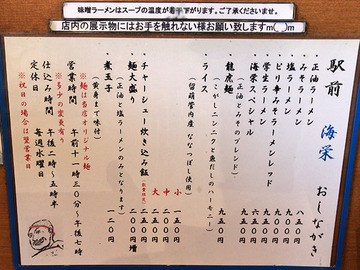 味噌ラーメンはスープの温度が若干下がります。ご了承くださいませ。
店内の展示物にはお手を触れない様お願い致しますm(__)m
駅前 海栄 おしながき
正油ラーメン 八五〇
みそラーメン 九〇〇
塩ラーメン 九〇〇
ピリ辛みそラーメンレッド 九五〇
学生ラーメン 六五〇
海栄スペシャル 九五〇
龍虎麺 九五〇
(正油とみそのブレンド)
(こがしニンニクと魚だしのハーモニー)
ライス
(留萌管内産 ななつぼし使用)
小 一五〇円
中 二〇〇円
大 二五〇円
チャーシュー炊き込み飯 二五〇円
麺大盛り 二〇〇円増
(正油と塩ラーメンのみとなります)
煮玉子 一二〇円
(黄身まで味付)
※麺は当店オリジナル麺
営業時間 午前十一時三〇分〜午後七時
※多少の変更有り
仕込み時間 午後二時〜五時半
定休日 毎週水曜日
※祝日の場合は翌営業日